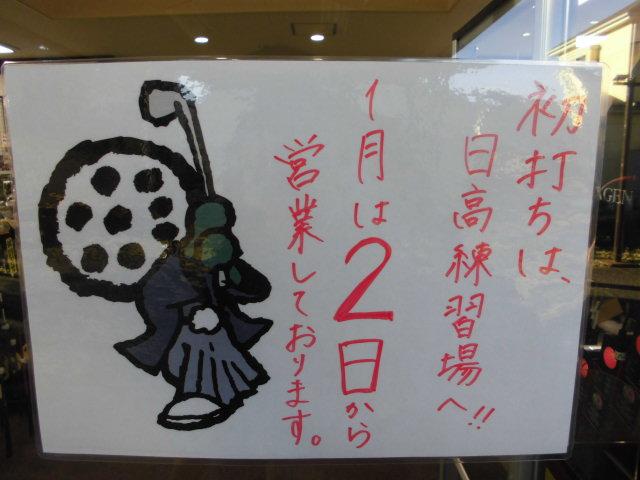 初打ちは、
日高練習場へ!!
1月は2日から
営業しております。